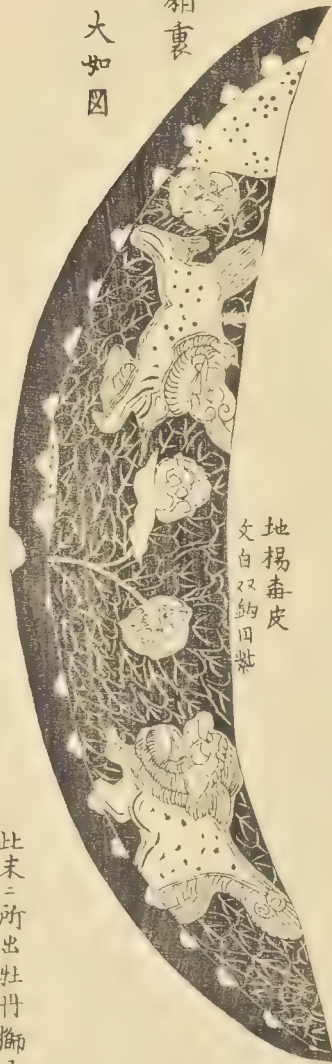 裏
大如図
地楊毒皮
文白双鈎用紫
此末ニ所出牡丹獅